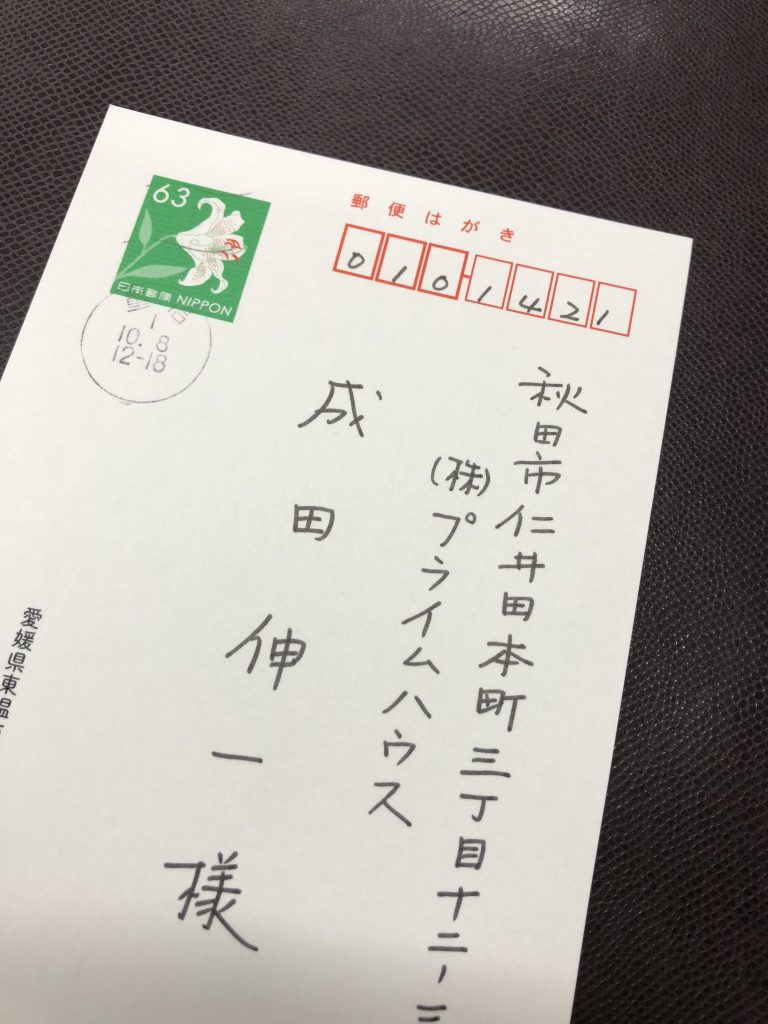 63
日本郵便 NIPPON
1
10. 8
12-18
郵便はがき
010-1421
秋田市仁井田本町三丁目十二-
(株)プライムハウス
成田伸一様
愛媛県東温